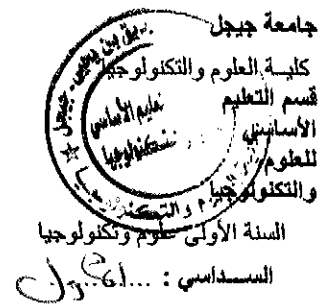 جامعة جيجل
كليـة العلوم والتكنولوجيا
قسم التعليم
الأساسي
للعلوم
والتكنولوجيا
السنة الأولى علوم وتكنولوجيا
الســداسي : ...الأول